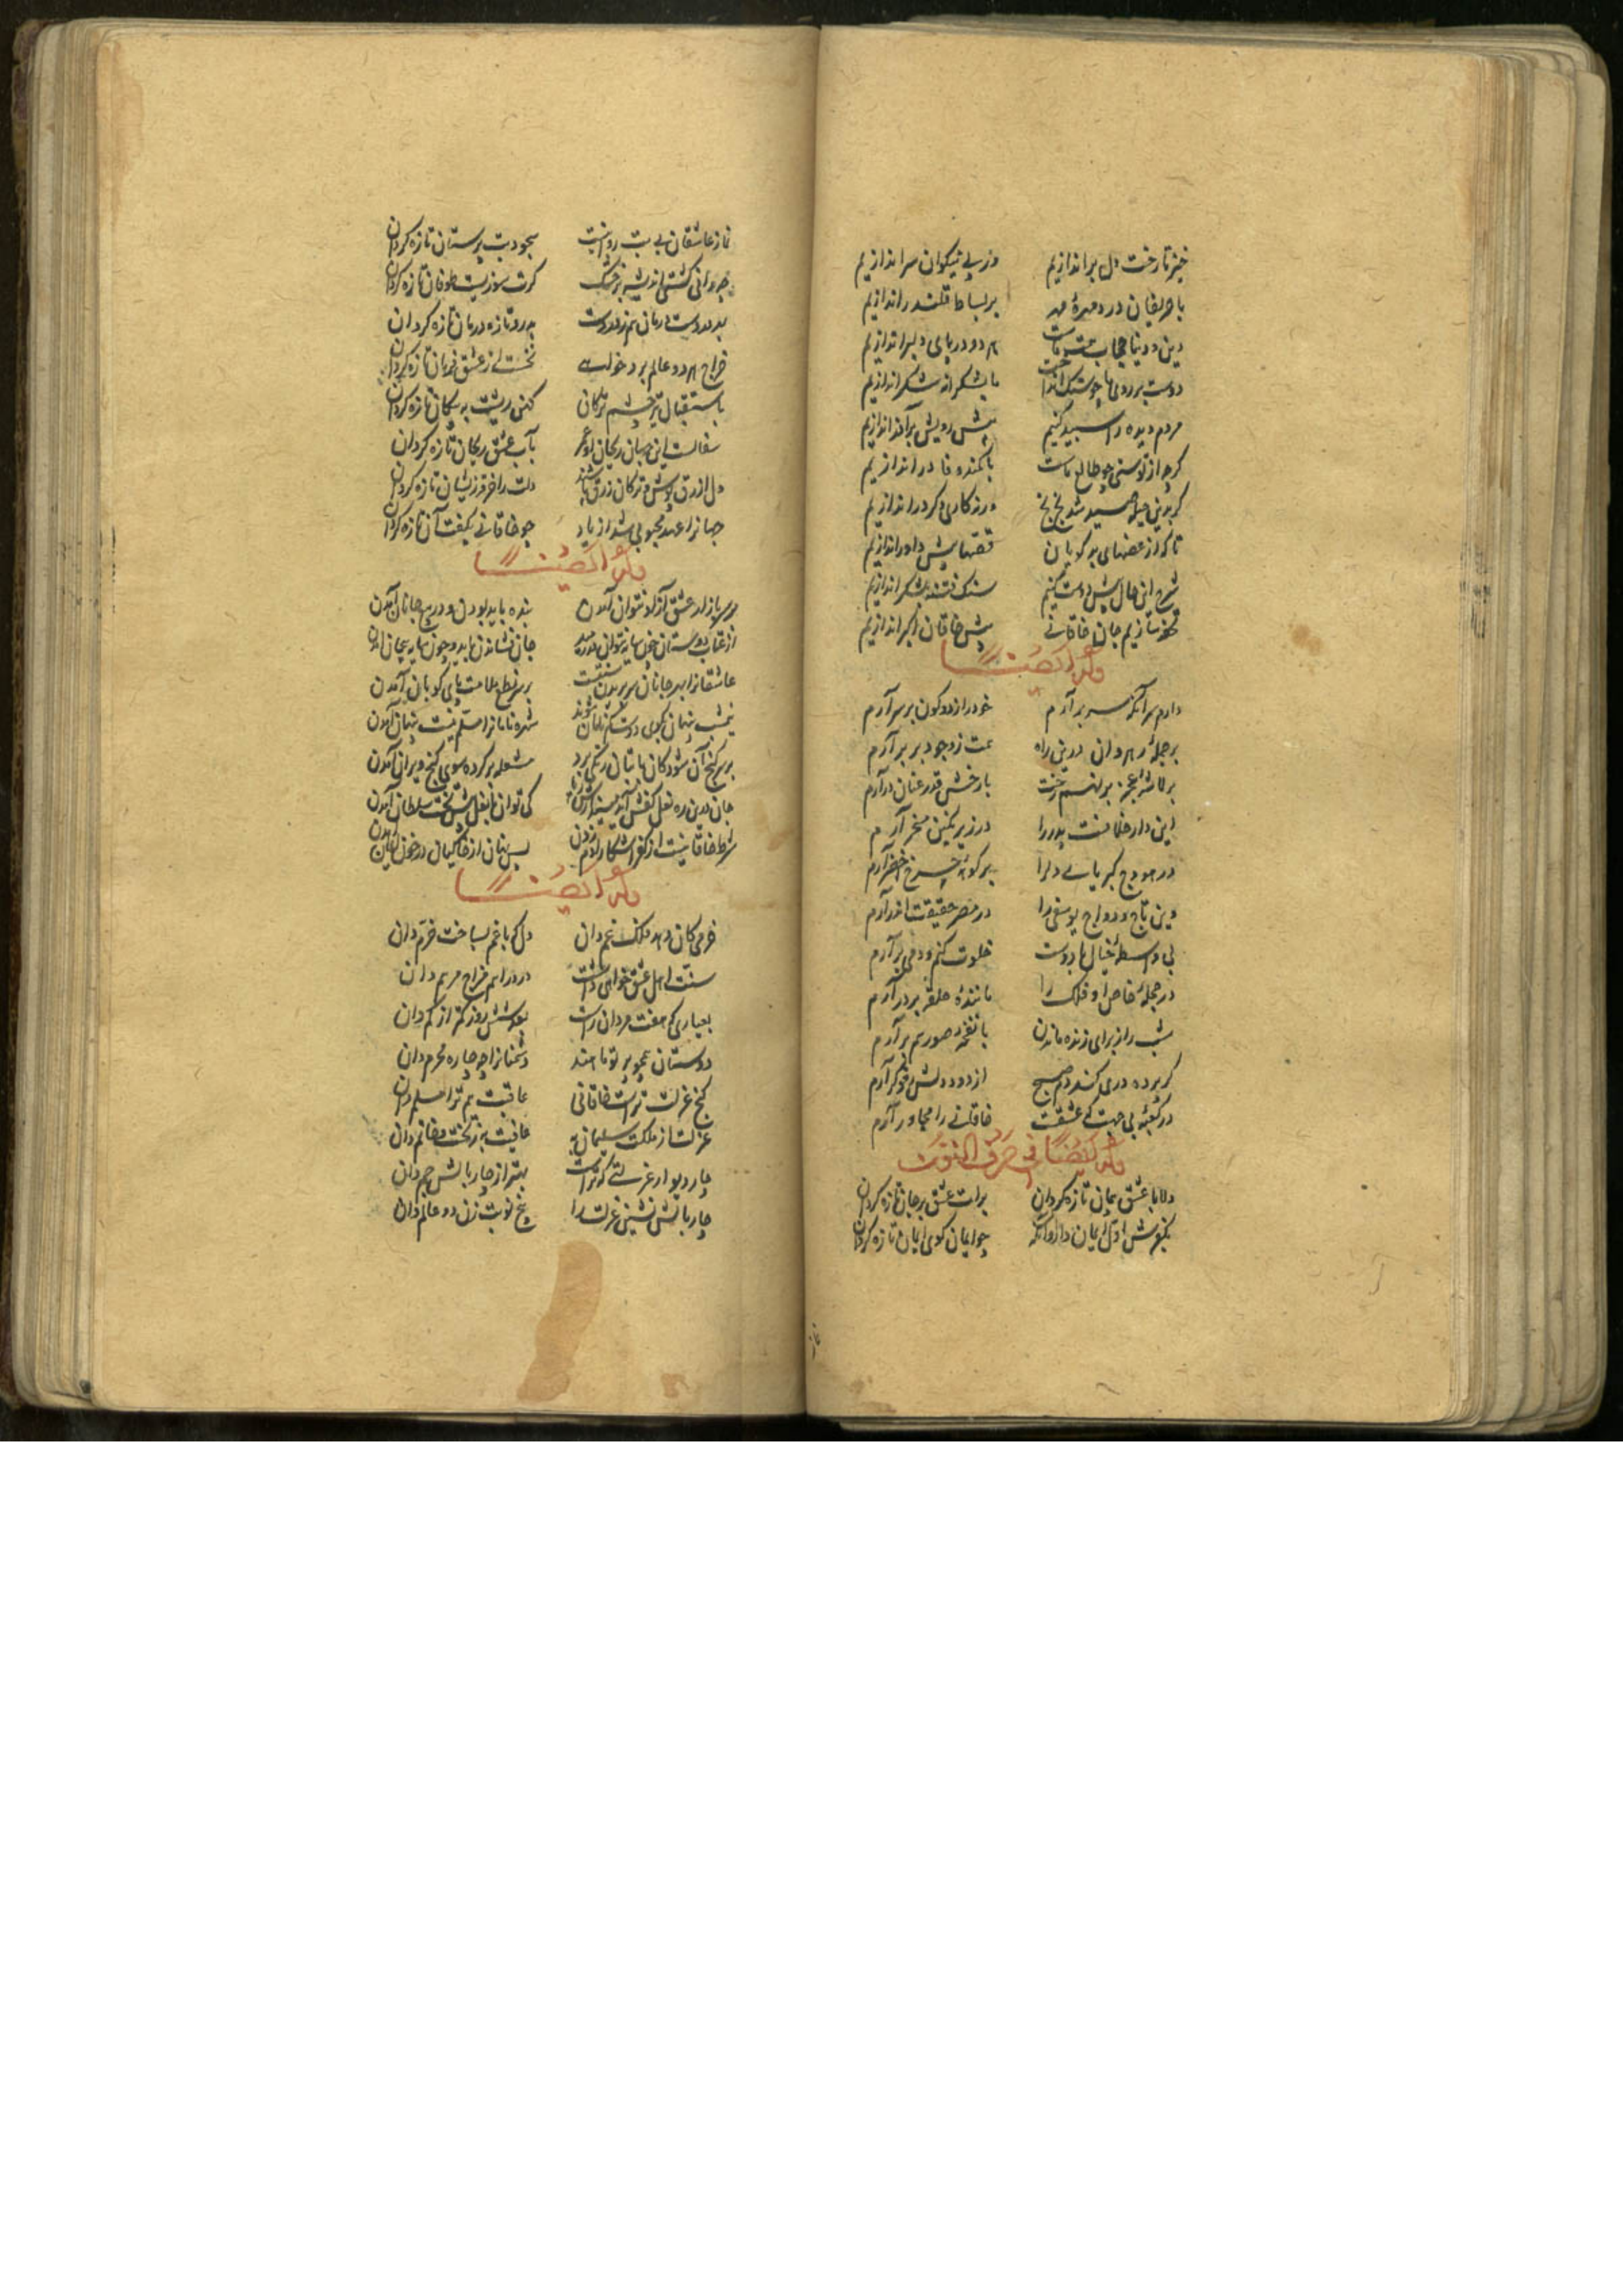 خیز تا رخت دل براندازیم وز پی نیکوان سر اندازیم
با حریفان درد مهرهٔ مهر بر بساط قلندر اندازیم
دین و دنیا حجاب همت ماست هر دو در پای دلبر اندازیم
دوست در روی ما چو سنگ انداخت ما بشکرانه شکر اندازیم
مردم دیده را سپند کنیم پیش رویش بر آذر اندازیم
گرچه از توسنی چو طالع ماست ما کمند وفا در اندازیم
گر بدین حیله صید شد بخ بخ ورنه کاری دگر در اندازیم
تا کی از غصهای بدگویان قصها پیش داور اندازیم
شرح این حال پیش دوست کنیم سنگ فتنه بلشکر اندازیم
تحفه سازیم جان خاقانی پیش خاقان اکبر اندازیم
وله ایضا
دارم سر آنکه سر برآرم خود را ز دو کون بر سر آرم
بر جملهٔ رهروان درین راه همت ز وجود برتر آرم
بر لاشهٔ عجز بر نهم رخت با رخش قدر عنان درآرم
این دار خلافت پدر را در زیر نگین مسخر آرم
در هودج کبریای دل را بر کوههٔ چرخ اخضر آرم
وین تاج دواج یوسفی را در مصر حقیقت اندر آرم
بی واسطهٔ خیال با دوست خلوت کنم و دمی برآرم
در حجلهٔ خاص او فلک را مانندهٔ حلقه بر در آرم
شب را ز برای زنده ماندن با نفخهٔ صور همبر آرم
گر پرده دری کند دم صبح از دود دلش رفوگر آرم
در کعبهٔ بی جهت ز عشقت خاقانی را مجاور آرم
وله ایضا فی حرف النون
دلا با عشق پیمان تازه گردان برات عشق بر جان تازه گردان
بکفرش اول ایمان دار وانگه چو ایمان گوی ایمان تازه گردان
نماز عاشقان بی بت روا نیست سجود بت پرستان تازه گردان
چه رانی کشتی اندیشه بر خشک گرت سوزیست طوفان تازه گردان
بدردوست درمان هم ز دردست بدرد تازه درمان تازه گردان
خراج هر دو عالم بردخواهی نخست از عشق فرمان تازه گردان
باستقبال تیر چشم ترکان کهن ریشت به پیکان تازه گردان
سفالست این جهان ریحان او عمر بآب عشق ریحان تازه گردان
دل ازرق پوش و ترکان زرق پاشند دلت را خرقه زیشان تازه گردان
جهانرا عهد مجنونی شد از یاد چو خاقانی بگفت آن تازه گردان
وله ایضا
بر سر بازار عشق آزاد نتوان آمدن بنده باید بودن و در بیع جانان آمدن
از عتاب دوستان چون سایه نتوان در رمید جان فشاندن باید و چون سایه بیجان آمدن
عاشقانرا بهر جانان سر بریدن سنتست بر سر نطع ملامت پای کوبان آمدن
نیمشب پنهان بکوی دوست گم نامان شوند شهره نامانرا مسلم نیست پنهان آمدن
بر سر گنج آن شود کان با تنان رنگی برد مشعله بر کرده سوی گنج ویران آمدن
جان درین ره نعل کفش آمد بیندازش ز پای کی توان با نعل پیش تخت سلطان آمدن
شرط خاقانیست از کفر آشکارا دم زدن پس نهان از خاکیان در خون ایمان آمدن
وله ایضا
خرمی کان دهد فلک غم دان دل که با غم بساخت خرم دان
سنت اهل عشق خواهی داشت درد را هم مزاج مرهم دان
بعیاری که هفت مردان راست بعد شش روز کمتر از کم دان
دوستان عیب بر تو تا هستند دشمنانرا چه چاره محرم دان
کنج عزلت تراست خاقانی عاقبت هم ترا مسلم دان
عزلت از ملکت سلیمان به عافیت به ز تخت و خاتم دان
چار دیوار عزلتی که تراست بهتر از چار بالش جم دان
چار بالش نشین عزلت را پنج نوبت زن دو عالم دان